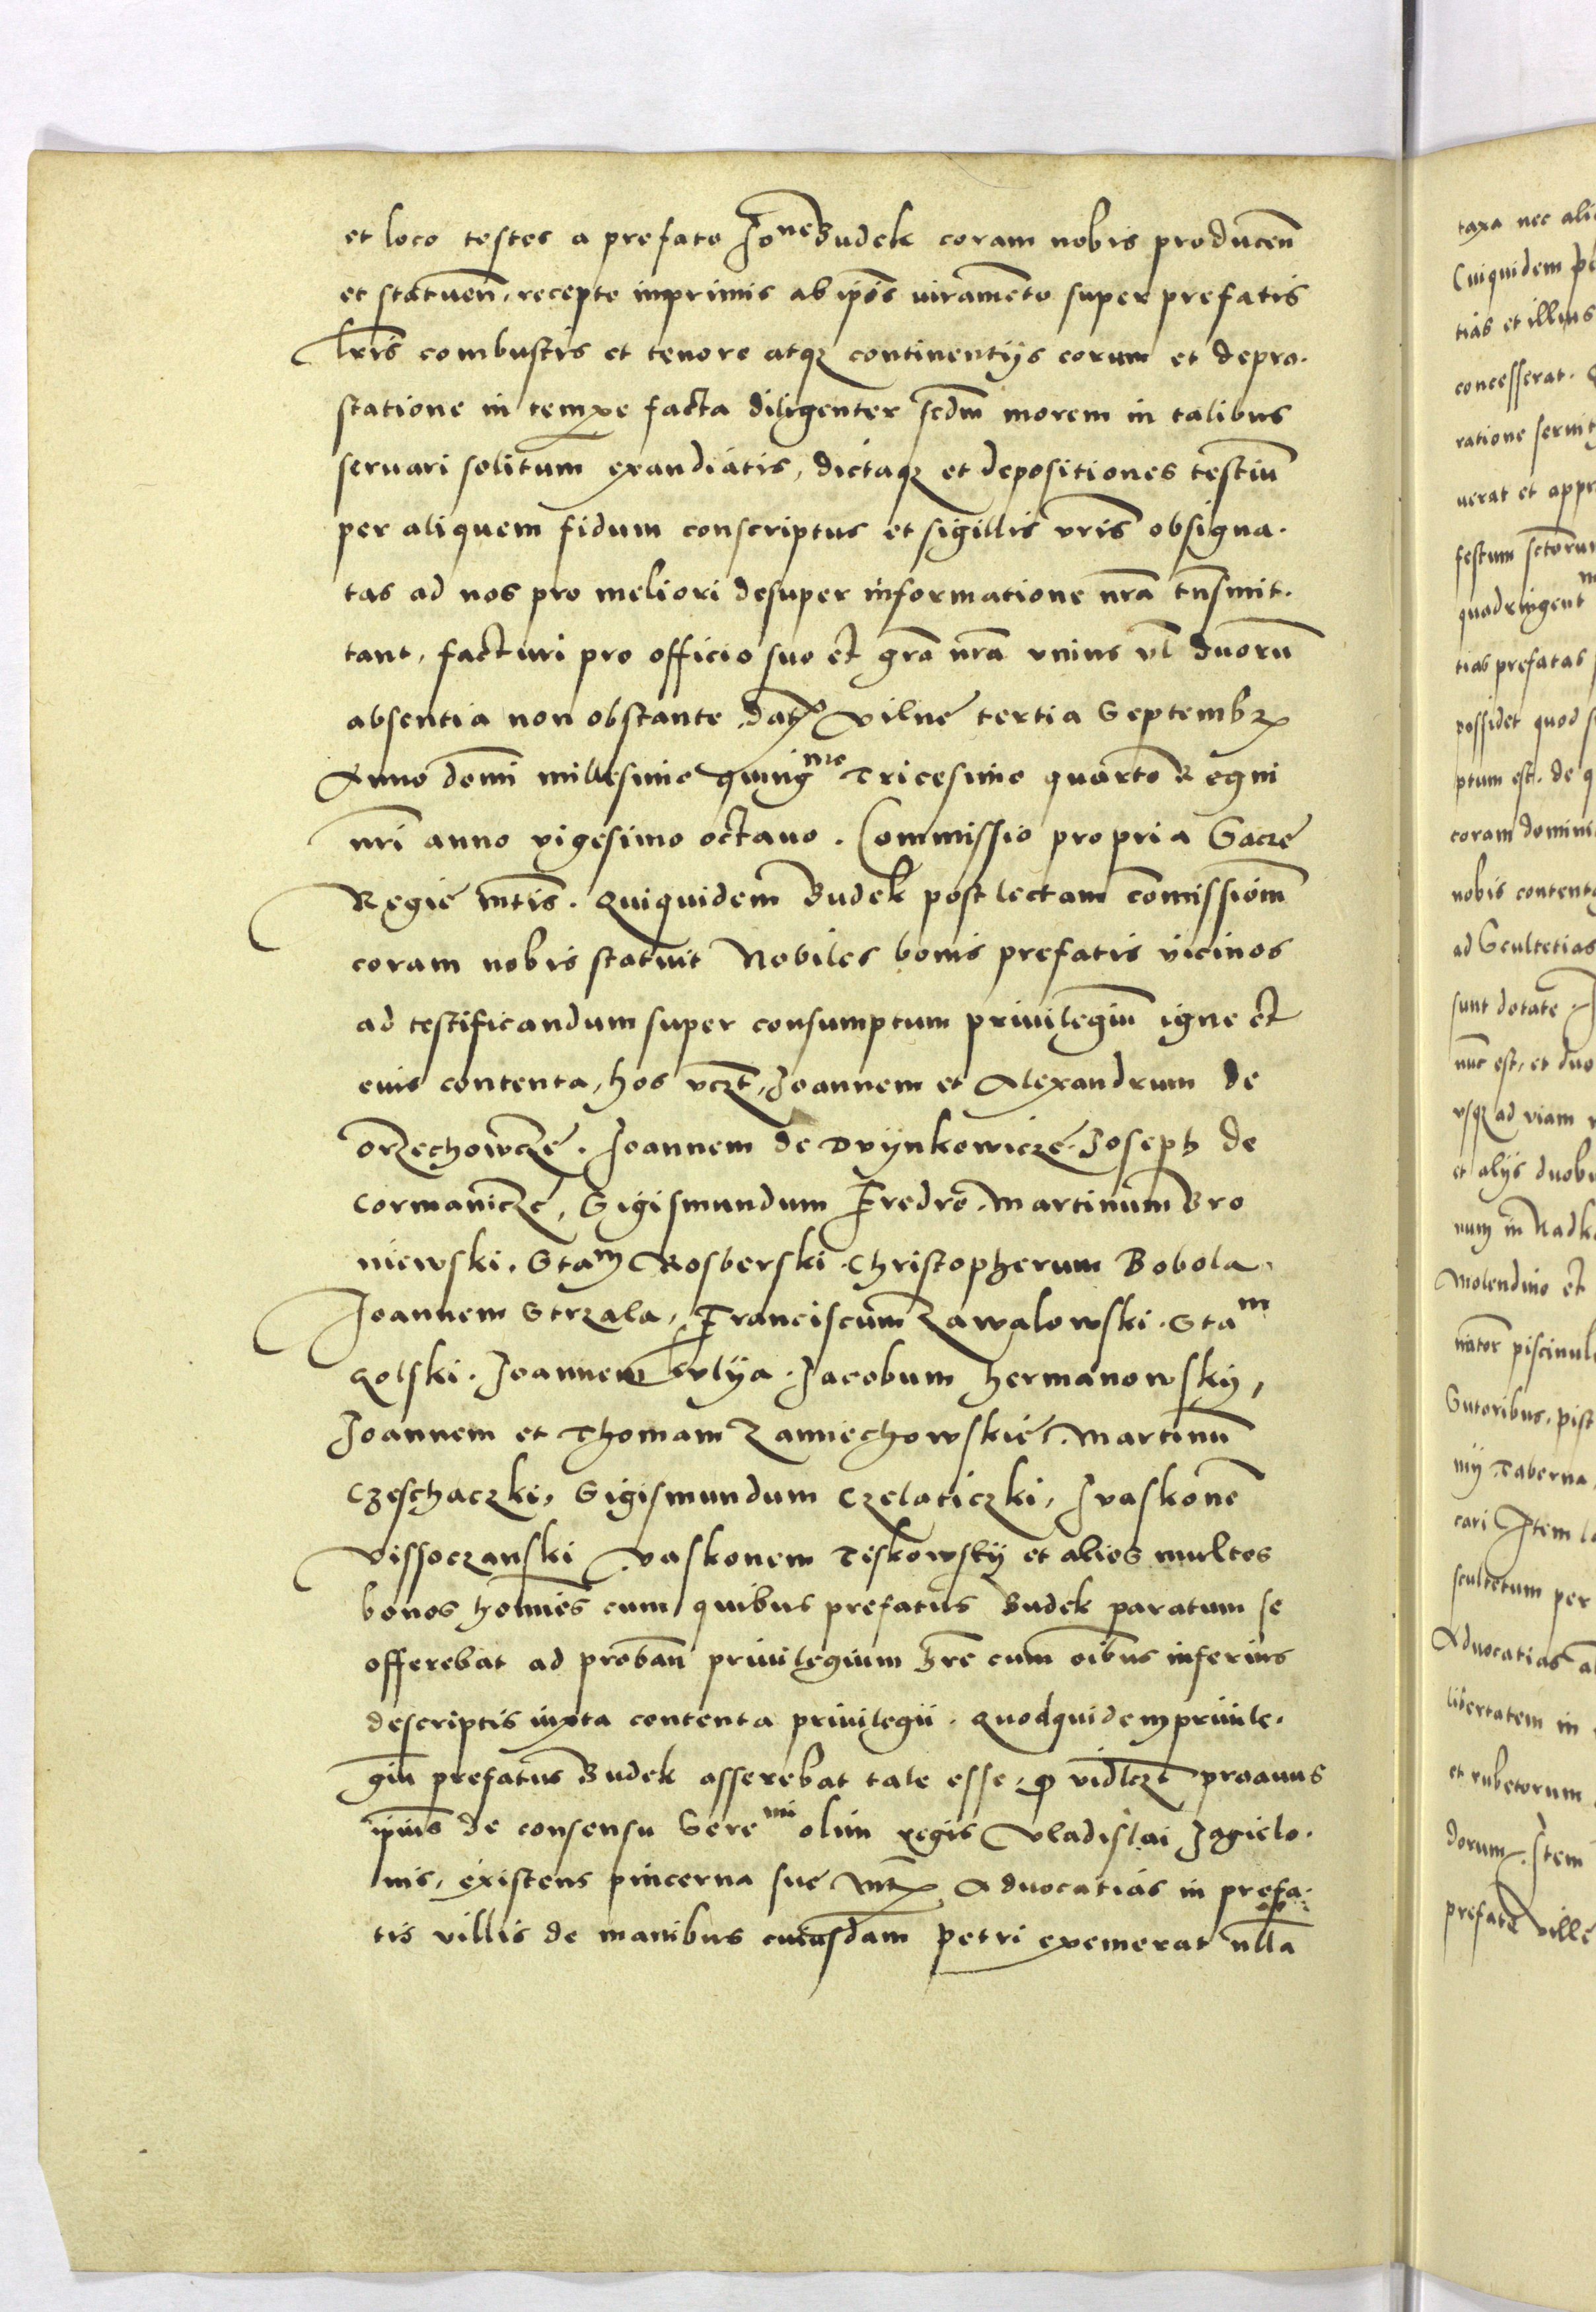 et loco testes a prefato Jo^ne Budek coram nobis producen̄
et statuen̄, recepto inprimis ab ip̄is iuramento super prefatis
l̄ris combustis et tenore atq₃ continentijs eorum et depra-
statione in tempe facta diligenter scdm̄ morem in talibus
seruari solitum exaudiatis, dictaq₃ et depositiones testiū
per aliquem fidum conscriptus et sigillis vr̄is obsigna-
tas ad nos pro meliori desuper informatione nr̄a tn̄smit-
tant, facturi pro officio suo et gr̄a nr̄a vnius vl̄ duorū
absentia non obstante. Dat Vilne tertia Septembr
Anno domī millesimo quing^mo Tricesimo quarto Regni
nr̄i anno vigesimo octauo. Commissio propria Sacre
Regie mtīs. Quiquidem Budek post lectam comissionē
coram nobis statuit Nobiles bonis prefatis vicinos
ad testificandum super consumptum priuilegiū igne et
eius contenta, hos vczt, Joannem et Alexandrum de
Orzechowcze. Joannem de Druynkowicze. Joseph de
Cormanicze, Sigismundum Fredro. Martinum Bro
niewski. Sta^m Rosberski. Christopherum Bobola.
Joannem Strzala, Franciscum Zawalowski. Sta^m
Golski. Joannem Jacobum Hermanowskÿ,
Joannem et Thomam Zamiechowskie. Martinū
Czeschaczki, Sigismundum Czelaticzki, Ivaskonē
Vissoczanski Vaskonem Tiskowskÿ et alios multos
bonos homīes cum quibus prefatus Budek paratum se
offerebat ad proban̄ priuilegium h̄re cum oībus inferius
descriptis iuxta contenta priuilegii. Quodquidem priuile-
giū prefatus Budek asserebat tale esse, ꝙ vidlczt proauus
ip̄ius de consensu Sere^mi olim regis Vladislai Jagielo-
nis, existens pincerna sue Mt Aduocatias in prefa-
tis villis de manibus cuiusdam Petri exemerat nll̄a
taxa nec ali
Cuiquidem
tias et illius
concesserat.
ratione seruit
uerat et appr
festum sctorum
quadringent
tias prefatas
possidet quod s
ptum est. de q
coram domini
nobis contenta
ad Scultetias
sunt dotate
nūc est, et duo
vsq₃ ad viam
et alijs duobu
num in Nadk
Molendino et
natōr piscinul
Sutoribus, pist
nij Taberna
cari Item la
scultetum per
Aduocatias a
libertatem in
et rubetorum
dorum. Item
prefate ville